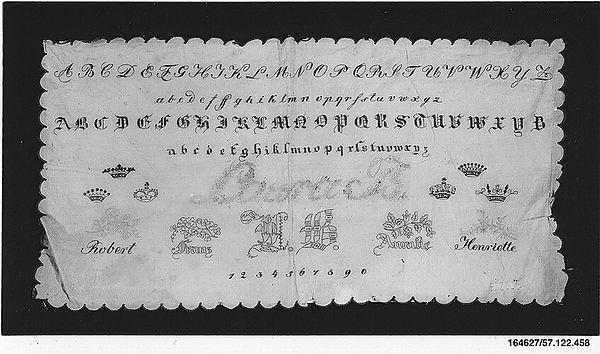 A B C D E F G H I K L M N O P Q R S T U V W X Y Z
a b c d e f ff g h i k l m n o p q r s s t u v w x y z
A B C D E F G H I K L M N O P Q R S T U V W X Y Z
a b c d e f g h i k l m n o p q r s s t u v w x y z
Robert Franz Amalie Henriette
1 2 3 4 5 6 7 8 9 0
164627/57.122.458